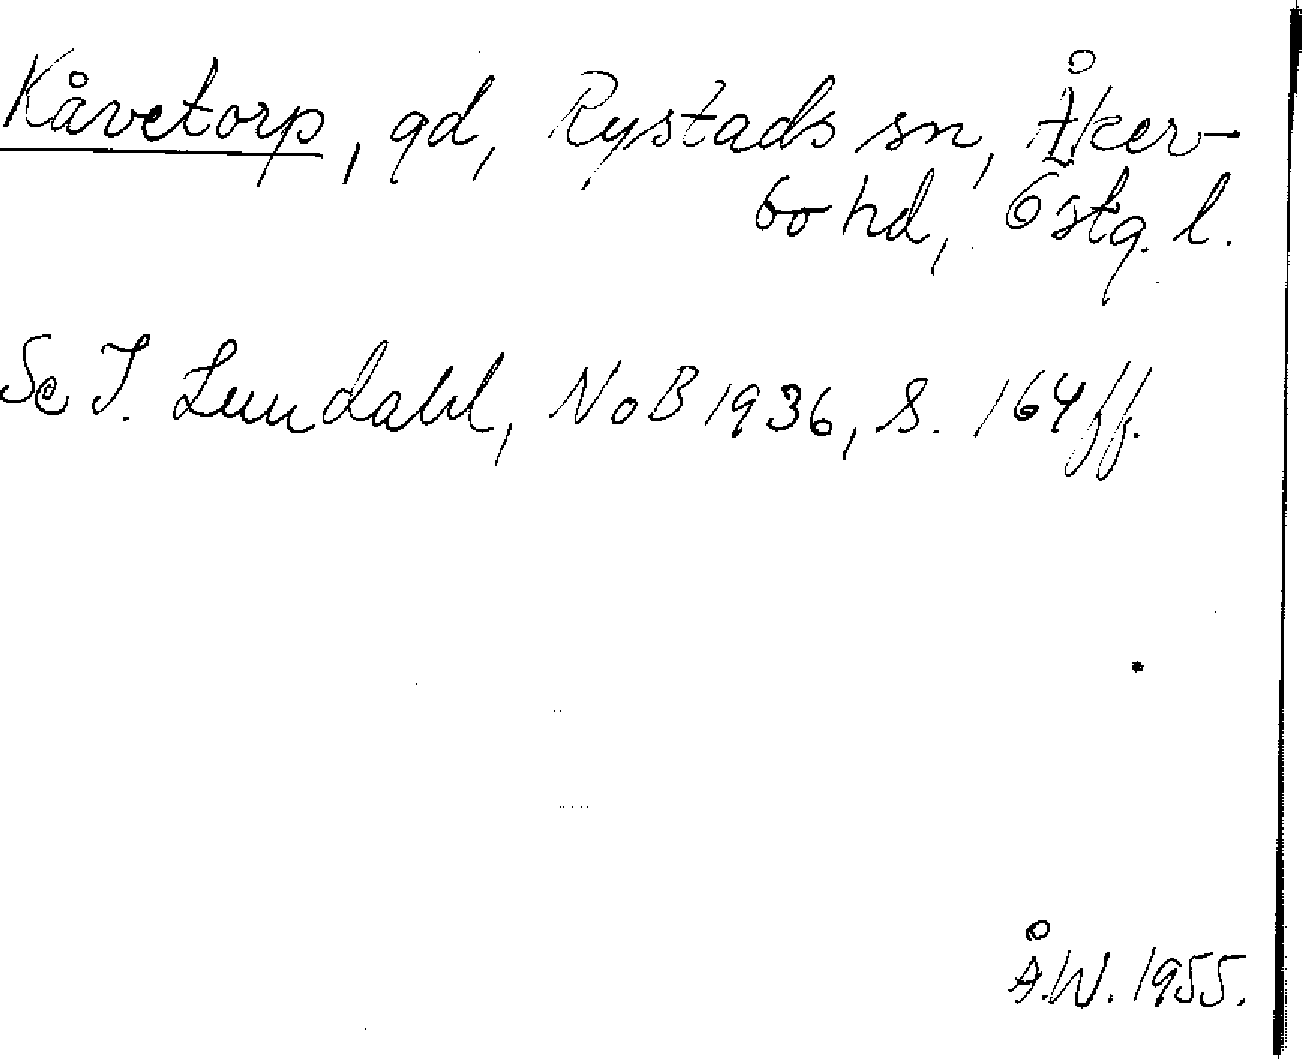 Kåvetorp, gd, Rystads sn, Åker-
bo hd, Östg. l.
Se I. Lundahl, NoB 1936, S. 164 ff.
Å.W. 1955.